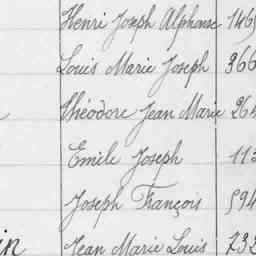 Henri Joseph Alphonse 1465
Louis Marie Joseph 366
Théodore Jean Marie 264
Emile Joseph 113
Joseph François 594
in Jean Marie Louis 732